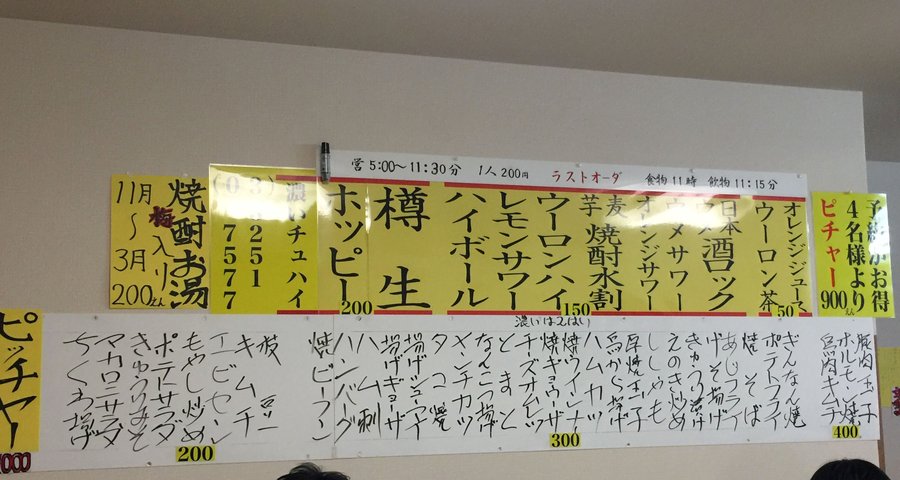 営 5:00〜11:30分 1人200円 ラストオーダ 食物11時 飲物11:15分
予約がお得
4名様より
ピチャー900
オレンジジュース
ウーロン茶
50
日本酒ロック
ウメサワー
オレンジサワー
麦焼酎水割
芋
150
ウーロンハイ
レモンサワー
ハイボール
樽生
ホッピー
200
濃いチュハイ
焼酎お湯
梅入り
11月
〜
3月
200えん
濃いは2はい
豚肉玉子
ホルモン焼
豚肉キムチ
400
ぎんなん焼
ポテトフライ
焼そば
あじフライ
げそ揚げ
きゅうり漬け
えのき炒め
ししゃも
厚焼玉子
鳥から揚げ
ハムカツ
焼ウインナ
焼ギョウザ
チーズオムレツ
とまと
なんこつ揚げ
メンチカツ
タコ焼
揚げシューマイ
揚げギョーザ
ハム刺
ハンバーグ
焼ビーフン
300
枝豆
キムチ
エビセン
もやし炒め
ポテトサラダ
きゅうりみそ
マカロニサラダ
ちくわ揚げ
200
ピッチャー
1000